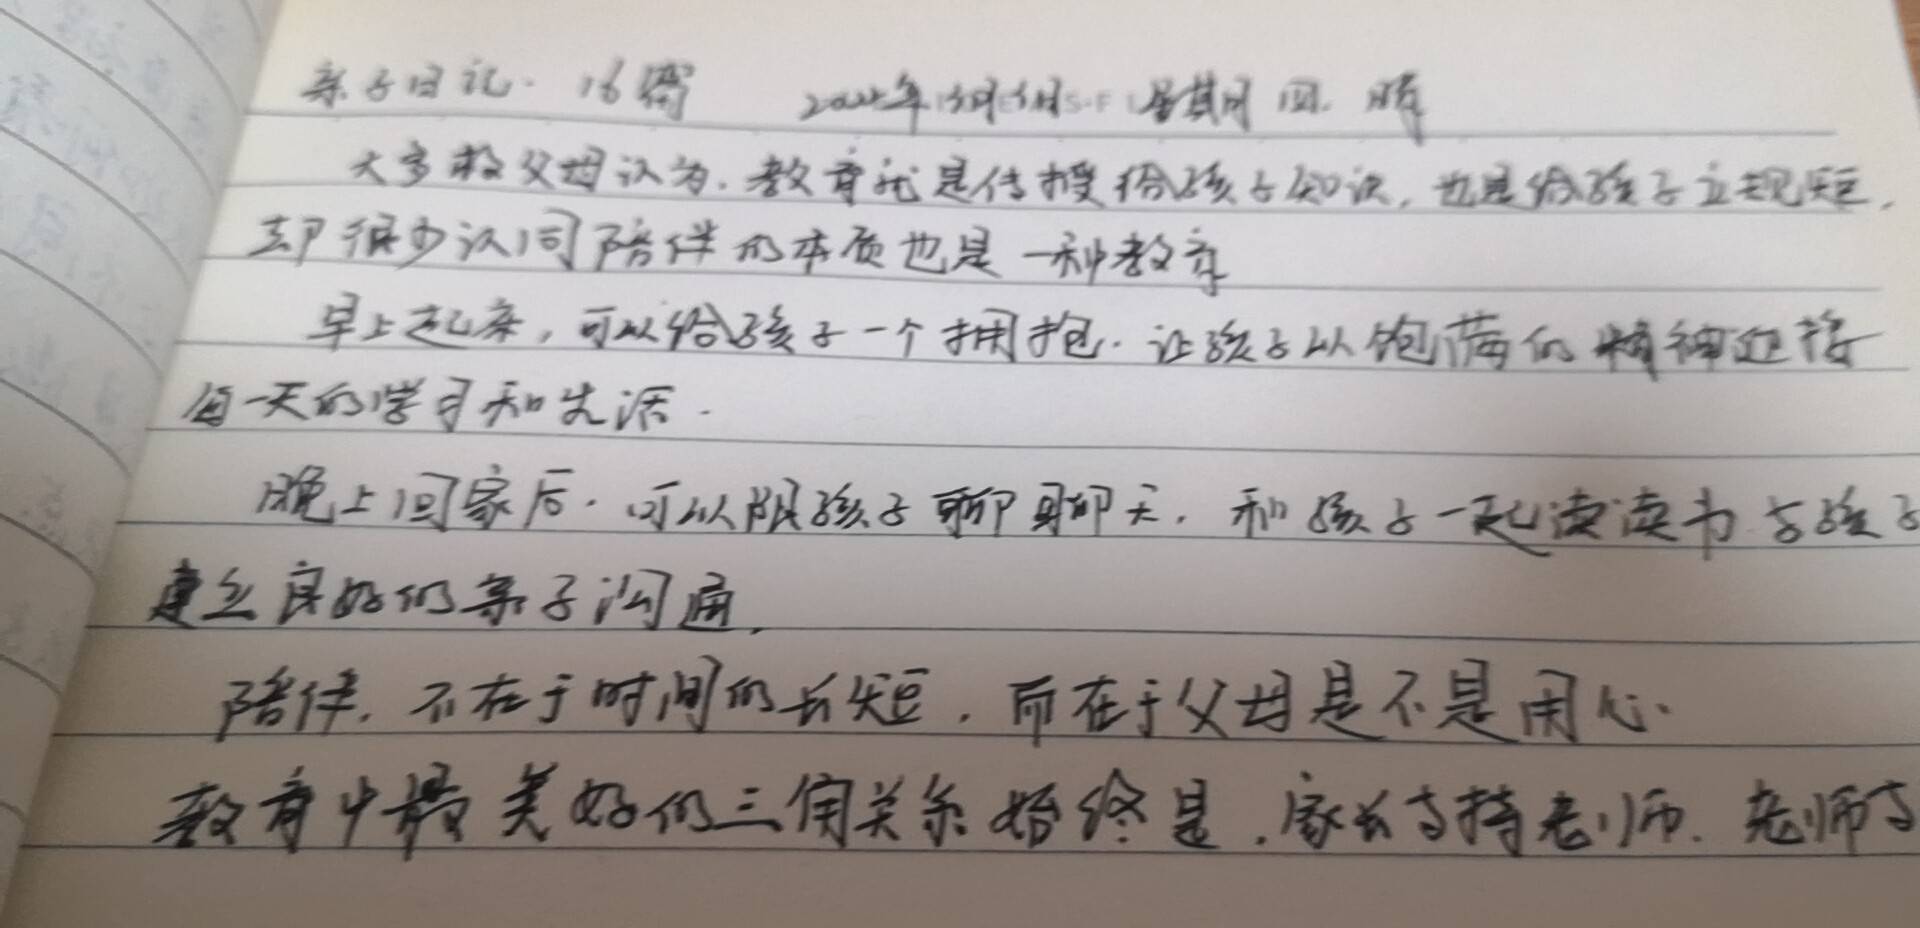 亲子日记. 16篇 星期四. 晴
大多数父母认为. 教育就是传授给孩子知识, 也是给孩子立规矩,
却很少认同陪伴的本质也是一种教育
早上起来, 可以给孩子一个拥抱. 让孩子以饱满的精神迎接
每一天的学习和生活.
晚上回家后. 可以跟孩子聊聊天, 和孩子一起读读书 与孩子
建立良好的亲子沟通,
陪伴, 不在于时间的长短, 而在于父母是不是用心.
教育中最美好的三角关系始终是, 家长支持老师. 老师支